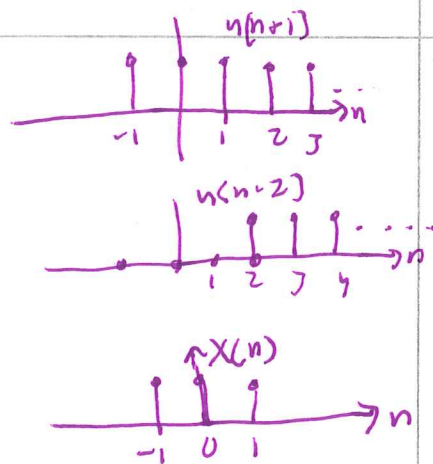 n[n+1]
....
n
-1 1 2 3
n[n-2]
.....
n
1 2 3 4
X(n)
n
-1 0 1